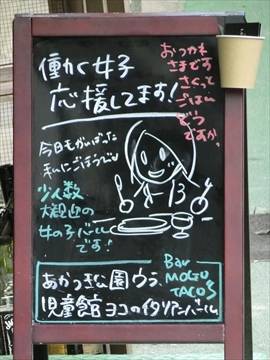 働く女子
応援してます!
おつかれ
さまです
さくっと
ごはん
どう
ですか。
今日もがんばった
私にごほうび
少人数
大歓迎の
女の子バル
です!
あかつき公園ウラ、
児童館ヨコのイタリアンバール
Bar
MOGU
TACO'S